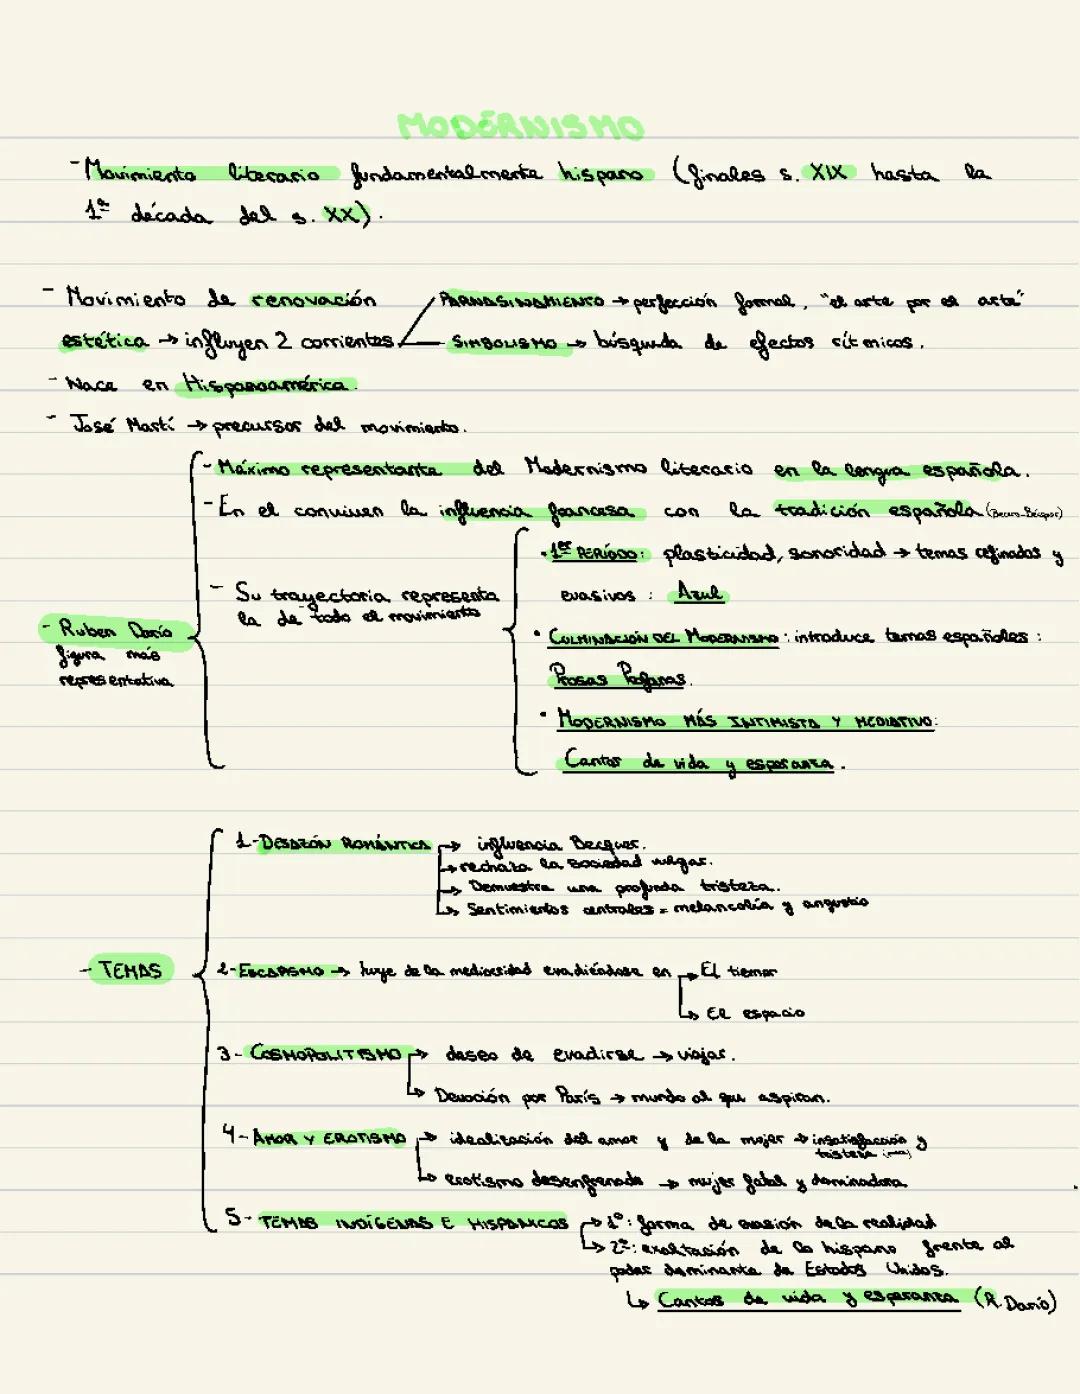 MODERNISMO
- Movimiento literario fundamentalmente hispano (finales s. XIX hasta la
1ª década del s. XX).
- Movimiento de renovación
estética → influyen 2 corrientes
PARNASIANAMIENTO → perfección formal, "el arte por el arte"
SIMBOLISMO → búsqueda de efectos rítmicos.
- Nace en Hispanoamérica.
- José Martí → precursor del movimiento.
- Ruben Darío
figura más
representativa
- Máximo representante del Modernismo literario en la lengua española.
- En el conviven la influencia francesa con la tradición española
- Su trayectoria representa
la de todo el movimiento
· 1er PERÍODO: plasticidad, sonoridad → temas refinados y
evasivos : Azul
· CULMINACIÓN DEL MODERNISMO : introduce temas españoles :
Prosas Profanas.
· MODERNISMO MÁS INTIMISTA Y MEDIATIVO:
Cantos de vida y esperanza.
- TEMAS
1- DESAZÓN ROMÁNTICA → influencia Becquer.
→ rechaza la sociedad vulgar.
→ Demuestra una profunda tristeza.
→ Sentimientos centrales = melancolía y angustia
2- ESCAPISMO → huye de la mediocridad evadiéndose en → El tiempo
→ El espacio
3- COSMOPOLITISMO → deseo de evadirse → viajar.
→ Devoción por París → mundo al que aspiran.
4- AMOR Y EROTISMO → idealización del amor y de la mujer → insatisfacción y
tristeza
→ erotismo desenfrenado → mujer fatal y dominadora
5- TEMAS INDÍGENAS E HISPÁNICOS → 1º: forma de evasión de la realidad
→ 2º: exaltación de lo hispano frente al
poder dominante de Estados Unidos.
↳ Cantos de vida y esperanza (R. Darío)